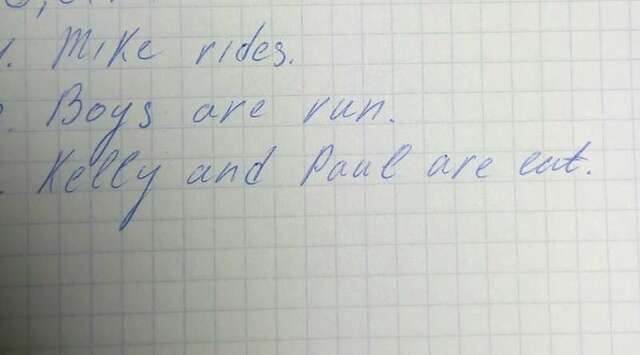 1. Mike rides.
Boys are run.
Kelly and Paul are eat.